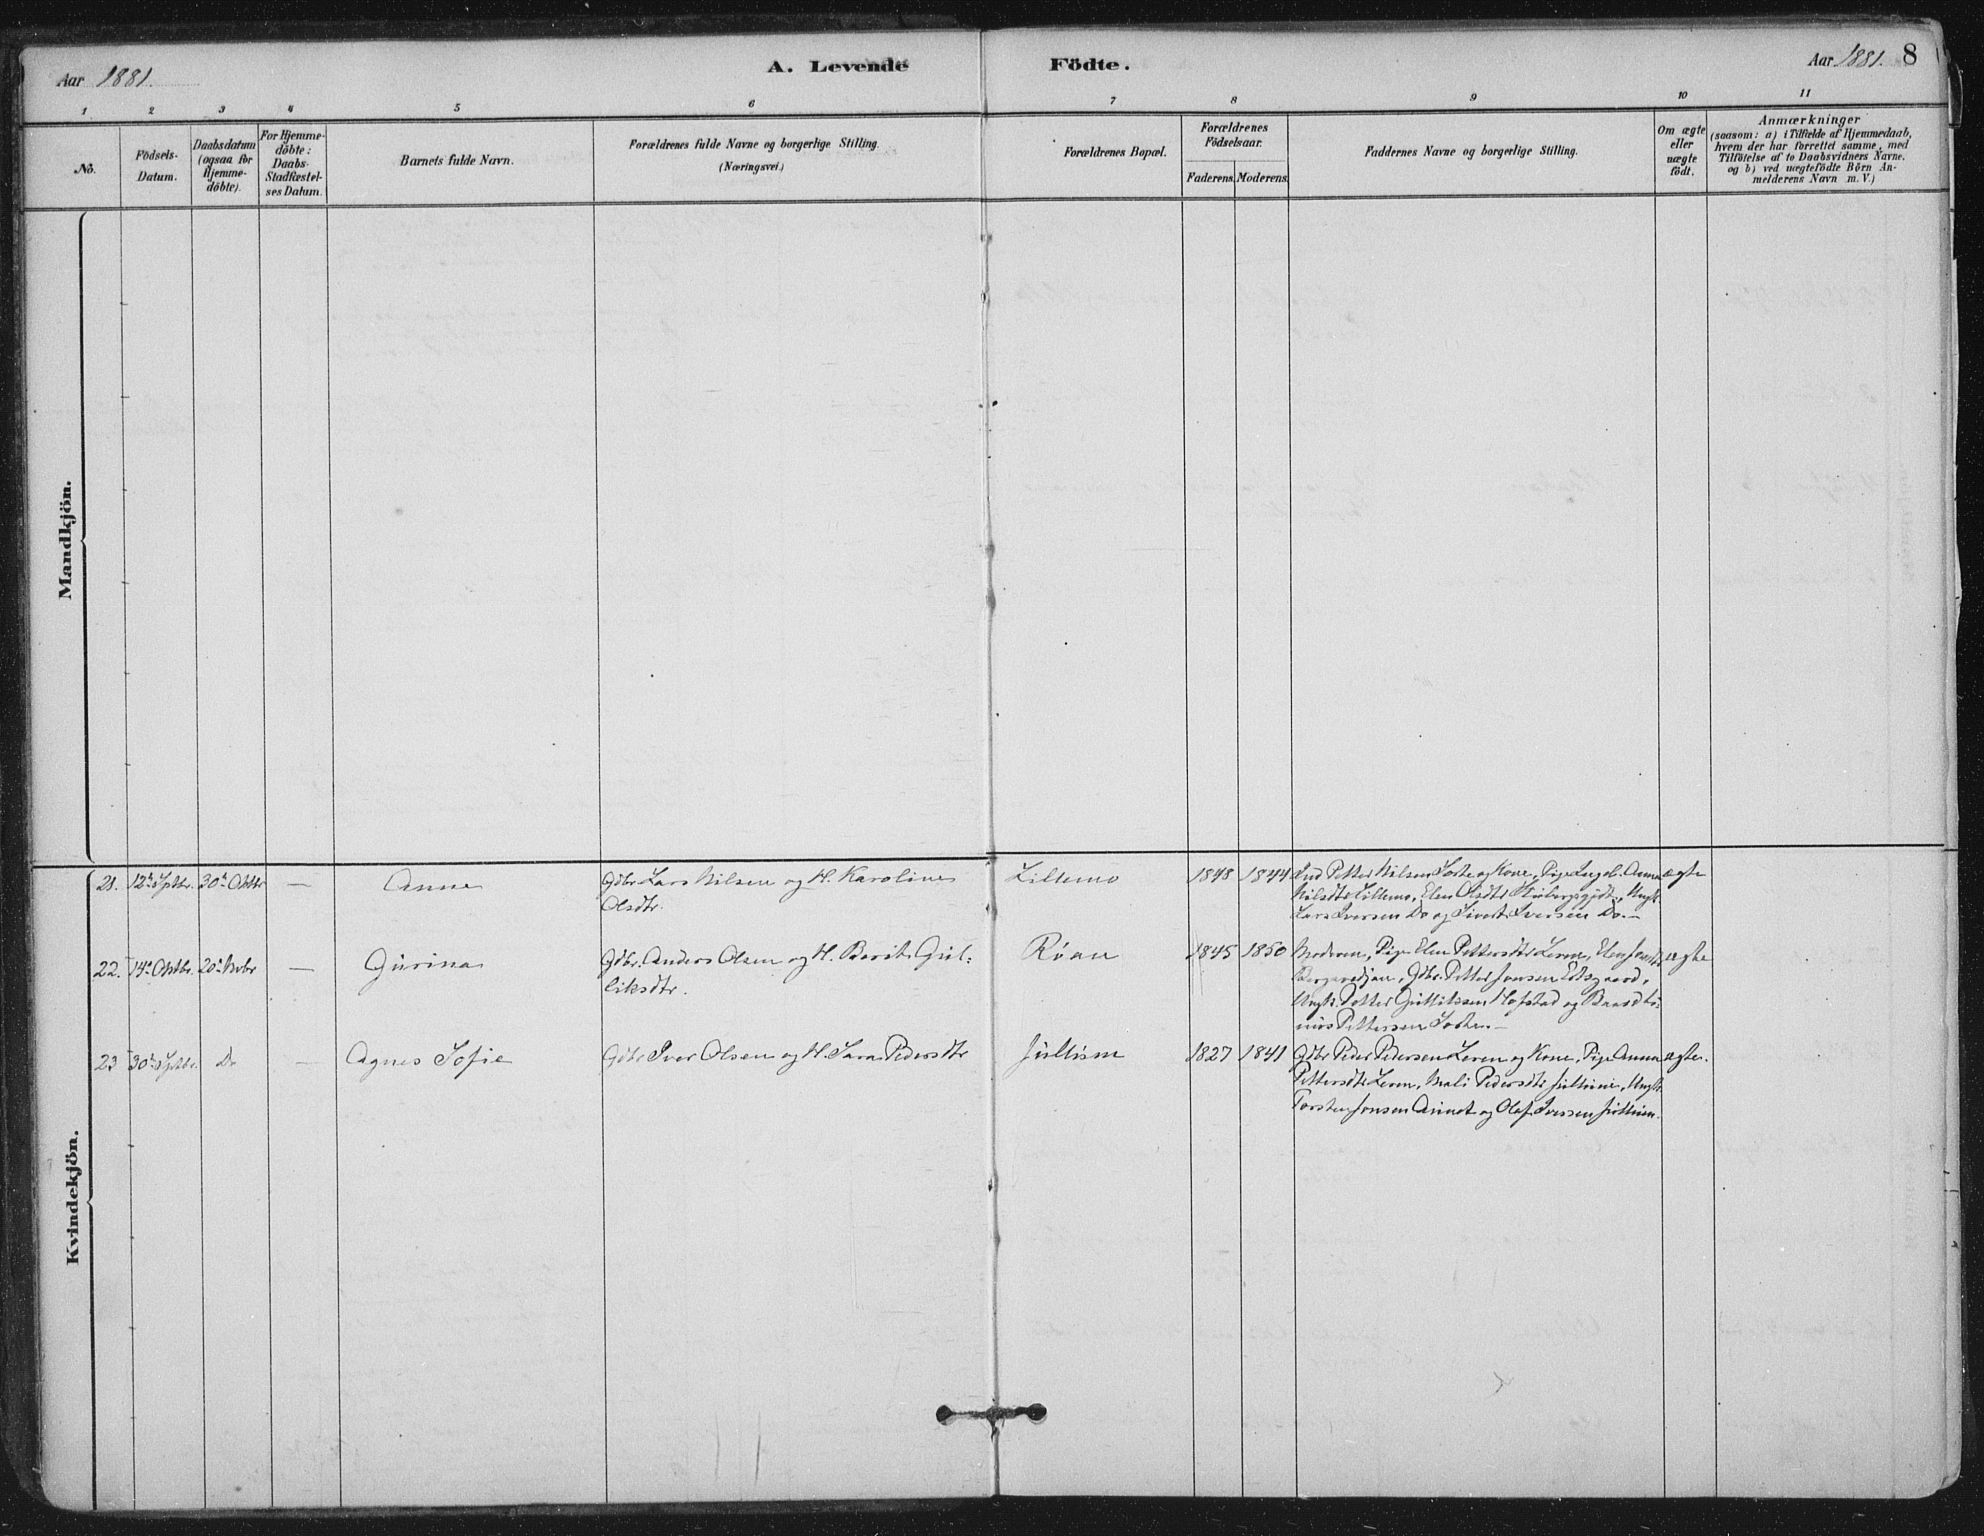 Aar 1881.
A. Levende Födte.
Aar 1881. 8
1 2 3 4 5 6 7 8 9 10 11
No.
Födsels-
Datum.
Daabsdatum
(ogsaa for
Hjemme-
döbte).
For Hjemme-
döbte:
Daabs-
Stadfæstel-
ses Datum.
Barnets fulde Navn.
Forældrenes fulde Navne og borgerlige Stilling.
(Næringsvei.)
Forældrenes Bopæl.
Forældrenes
Födselsaar.
Faderens. Moderens.
Faddernes Navne og borgerlige Stilling.
Om ægte
eller
uægte
födt.
Anmærkninger
(saasom: a) i Tilfælde af Hjemmedaab,
hvem der har forrettet samme, med
Tilföielse af to Daabsvidners Navne,
og b) ved uægtefödte Börn An-
melderens Navn m. V.)
Mandkjön.
Kvindekjön.
21. 12te Sptbr. 30te Oktbr — Anna Gdbr. Lars Nilsen og H. Karoline Lillemo 1848 1844 Ind Petter Nilsen og Kone, Pige Anna ægte
Olsdtr. Nilsdtr Lillemo, Elen Olsdtr Ungk.
Lars Iversen Do og Sivert Iversen Do.—
22. 14de Oktbr. 20de Novbr — Gurina Gdbr. Anders Olsen og H. Berit Gul- Röan 1845 1850 Moderen, Pige Elen Pettersdtr Leren, Elen ægte
liksdtr. Gdbr. Petter Jonsen
Ungk. Petter Gulliksen Hofstad og Baard
Pettersen
23 30te Sptbr. Do — Agnes Sofie Gdbr Iver Olsen og H. Sara Pedersdtr Jullum 1827 1841 Gdbr Peder Pedersen Leren og Kone, Pige Anna ægte.
Pettersdtr Leren, Mali Pedersdtr Ungk
Torsten Jonsen og Olaf Iversen